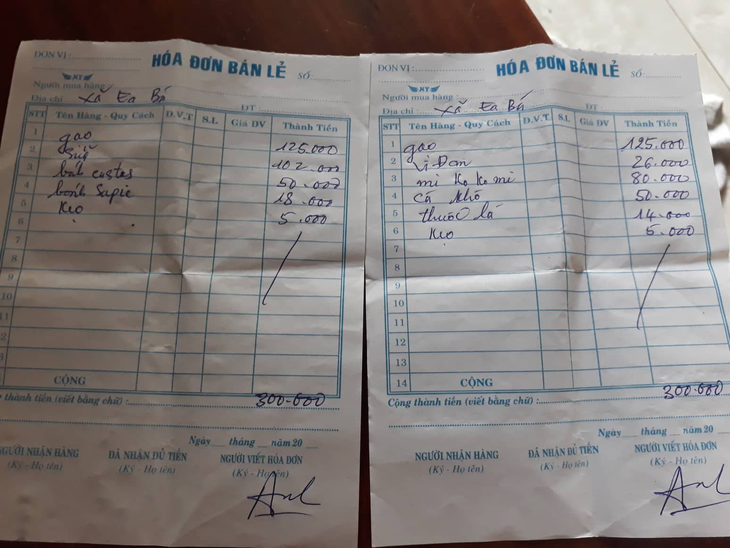 ĐƠN VỊ : HÓA ĐƠN BÁN LẺ SỐ
NT
Người mua hàng
Địa chỉ Xã Ea Bá ĐT
STT Tên Hàng - Quy Cách Đ.V.T. S.L Giá ĐV Thành Tiền
1 gạo 125.000
2 Sữa 102.000
3 bánh custas 50.000
4 bánh Supie 18.000
5 Kẹo 5.000
6
7
8
9
10
11
CỘNG
thành tiền (viết bằng chữ) : 300.000
Ngày tháng năm 20
NGƯỜI NHẬN HÀNG ĐÃ NHẬN ĐỦ TIỀN NGƯỜI VIẾT HÓA ĐƠN
(Ký - Họ tên) (Ký - Họ tên) (Ký - Họ tên)
ĐƠN VỊ : HÓA ĐƠN BÁN LẺ SỐ
NT
Người mua hàng
Địa chỉ Xã Ea Bá ĐT
STT Tên Hàng - Quy Cách Đ.V.T. S.L Giá ĐV Thành Tiền
1 gạo 125.000
2 Vị Đơn 26.000
3 mì Ko Ko mi 80.000
4 cá khô 50.000
5 thuốc lá 14.000
6 Kẹo 5.000
7
8
9
10
11
12
13
14 CỘNG
Cộng thành tiền (viết bằng chữ) : 300.000
Ngày tháng năm 20
NGƯỜI NHẬN HÀNG ĐÃ NHẬN ĐỦ TIỀN NGƯỜI VIẾT HÓA ĐƠN
(Ký - Họ tên) (Ký - Họ tên) (Ký - Họ tên)